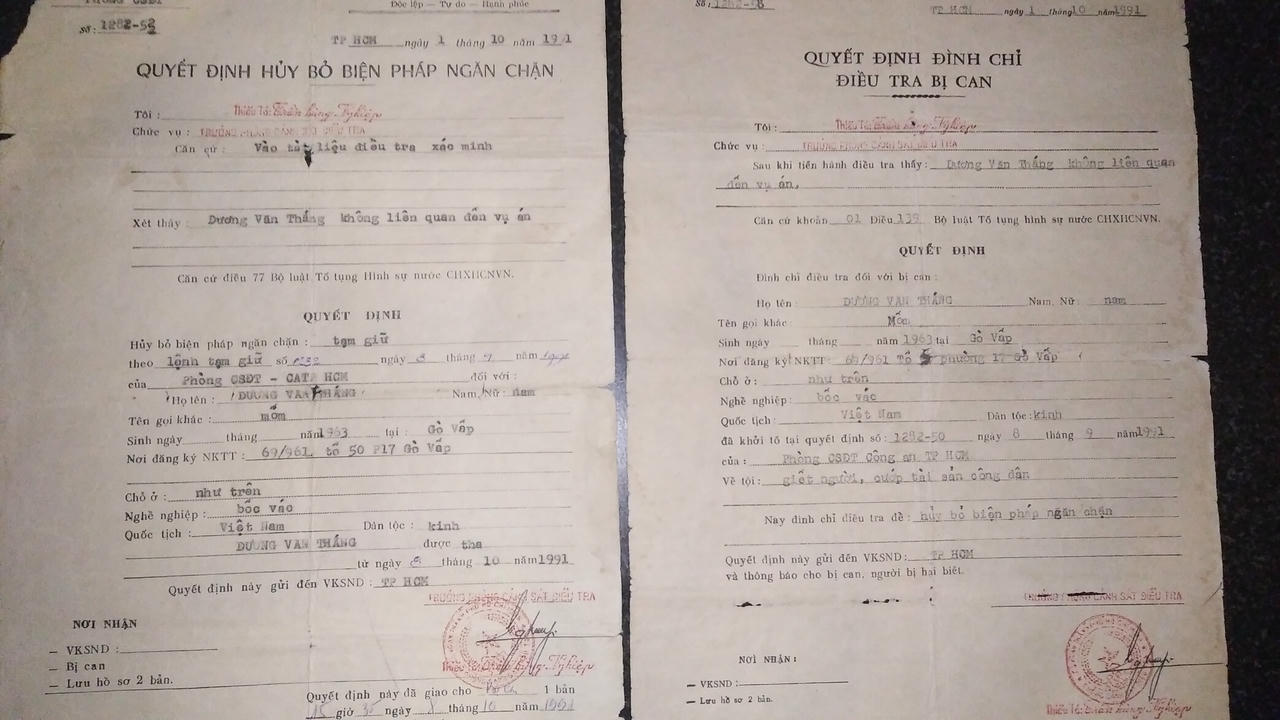 Độc lập — Tự do — Hạnh phúc
Số: 1282-52
TP HCM ngày 1 tháng 10 năm 1991
QUYẾT ĐỊNH HỦY BỎ BIỆN PHÁP NGĂN CHẶN
Tôi : Thiếu Tá: Trần Hùng Nghiệp
Chức vụ : TRƯỞNG PHÒNG CẢNH SÁT ĐIỀU TRA
Căn cứ : Vào tài liệu điều tra xác minh
Xét thấy : Dương Văn Thắng không liên quan đến vụ án
Căn cứ điều 77 Bộ luật Tố tụng Hình sự nước CHXHCNVN.
QUYẾT ĐỊNH
Hủy bỏ biện pháp ngăn chặn : tạm giữ
theo lệnh tạm giữ số ngày 8 tháng 9 năm
của Phòng CSĐT - CATP HCM đối với :
Họ tên : DƯƠNG VĂN THẮNG Nam, Nữ : nam
Tên gọi khác : mốm
Sinh ngày tháng năm 1963 tại : Gò Vấp
Nơi đăng ký NKTT : 69/961, tổ 50 P17 Gò Vấp
Chỗ ở : như trên
Nghề nghiệp : bốc vác
Quốc tịch : Việt Nam Dân tộc : kinh
DƯƠNG VĂN THẮNG được tha
từ ngày 8 tháng 10 năm 1991
Quyết định này gửi đến VKSND : TP HCM
TRƯỞNG PHÒNG CẢNH SÁT ĐIỀU TRA
NƠI NHẬN
— VKSND :
— Bị can
— Lưu hồ sơ 2 bản.
Thiếu Tá: Trần Hùng Nghiệp
Quyết định này đã giao cho 1 bản
15 giờ ngày 8 tháng 10 năm 1991
Số: 1282-58
TP HCM ngày 1 tháng 10 năm 1991
QUYẾT ĐỊNH ĐÌNH CHỈ
ĐIỀU TRA BỊ CAN
Tôi : Thiếu Tá: Trần Hùng Nghiệp
Chức vụ : TRƯỞNG PHÒNG CẢNH SÁT ĐIỀU TRA
Sau khi tiến hành điều tra thấy : Dương Văn Thắng không liên quan
đến vụ án,
Căn cứ khoản 01 Điều 139 Bộ luật Tố tụng hình sự nước CHXHCNVN.
QUYẾT ĐỊNH
Đình chỉ điều tra đối với bị can :
Họ tên : DƯƠNG VĂN THẮNG Nam, Nữ : nam
Tên gọi khác : Mốm
Sinh ngày tháng năm 1963 tại Gò Vấp
Nơi đăng ký NKTT : 69/961 Tổ phường 17 Gò Vấp
Chỗ ở : như trên
Nghề nghiệp : bốc vác
Quốc tịch : Việt Nam Dân tộc : kinh
đã khởi tố tại quyết định số : 1282-50 ngày 8 tháng 9 năm 1991
của : Phòng CSĐT Công an TP HCM
Về tội : giết người, cướp tài sản công dân
Nay đình chỉ điều tra để : hủy bỏ biện pháp ngăn chặn
Quyết định này gửi đến VKSND: TP HCM
và thông báo cho bị can, người bị hại biết.
TRƯỞNG PHÒNG CẢNH SÁT ĐIỀU TRA
NƠI NHẬN :
— VKSND :
— Lưu hồ sơ 2 bản.
Thiếu Tá: Trần Hùng Nghiệp